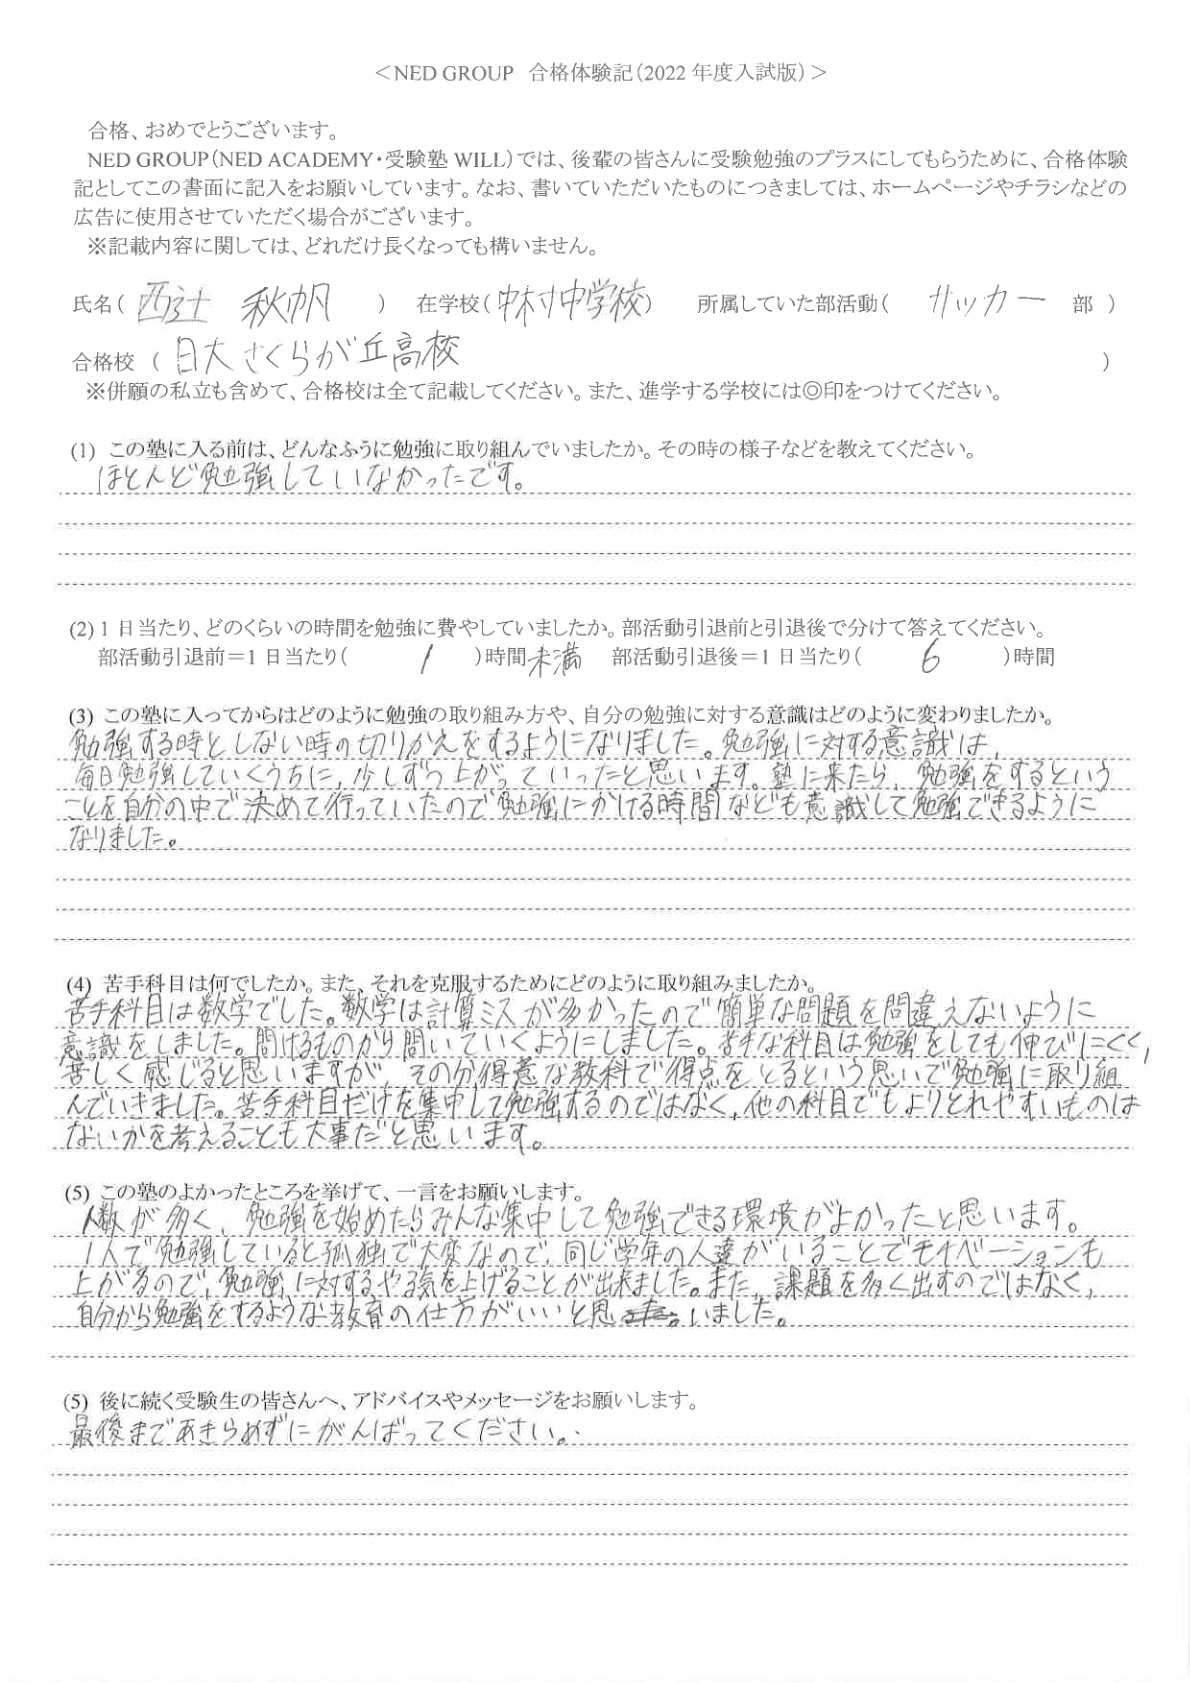 ＜NED GROUP 合格体験記（2022 年度入試版）＞
合格、おめでとうございます。
NED GROUP（NED ACADEMY・受験塾 WILL）では、後輩の皆さんに受験勉強のプラスにしてもらうために、合格体験
記としてこの書面に記入をお願いしています。なお、書いていただいたものにつきましては、ホームページやチラシなどの
広告に使用させていただく場合がございます。
※記載内容に関しては、どれだけ長くなっても構いません。
氏名（ 西辻 秋帆 ） 在学校（中村中学校） 所属していた部活動（ サッカー 部 ）
合格校 （ 日大さくらが丘高校 ）
※併願の私立も含めて、合格校は全て記載してください。また、進学する学校には◎印をつけてください。
(1) この塾に入る前は、どんなふうに勉強に取り組んでいましたか。その時の様子などを教えてください。
ほとんど勉強していなかったです。
(2) 1 日当たり、どのくらいの時間を勉強に費やしていましたか。部活動引退前と引退後で分けて答えてください。
部活動引退前＝1 日当たり（ 1 ）時間未満 部活動引退後＝1 日当たり（ 6 ）時間
(3) この塾に入ってからはどのように勉強の取り組み方や、自分の勉強に対する意識はどのように変わりましたか。
勉強する時としない時の切りかえをするようになりました。勉強に対する意識は、
毎日勉強していくうちに、少しずつ上がっていったと思います。塾に来たら、勉強をするという
ことを自分の中で決めて行っていたので勉強にかける時間なども意識して勉強できるように
なりました。
(4) 苦手科目は何でしたか。また、それを克服するためにどのように取り組みましたか。
苦手科目は数学でした。数学は計算ミスが多かったので簡単な問題を間違えないように
意識をしました。問けるものから問いていくようにしました。苦手な科目は勉強をしても伸びにくく、
苦しく感じると思いますが、その分得意な教科で得点をとるという思いで勉強に取り組
んでいきました。苦手科目だけを集中して勉強するのではなく、他の科目でもよりとれやすいものは
ないかを考えることも大事だと思います。
(5) この塾のよかったところを挙げて、一言をお願いします。
人数が多く、勉強を始めたらみんな集中して勉強できる環境がよかったと思います。
1人で勉強していると孤独で大変なので、同じ学年の人達がいることでモチベーションも
上がるので、勉強に対するやる気を上げることが出来ました。また、課題を多く出すのではなく、
自分から勉強をするような教育の仕方がいいと思いました。
(5) 後に続く受験生の皆さんへ、アドバイスやメッセージをお願いします。
最後まであきらめずにがんばってください。